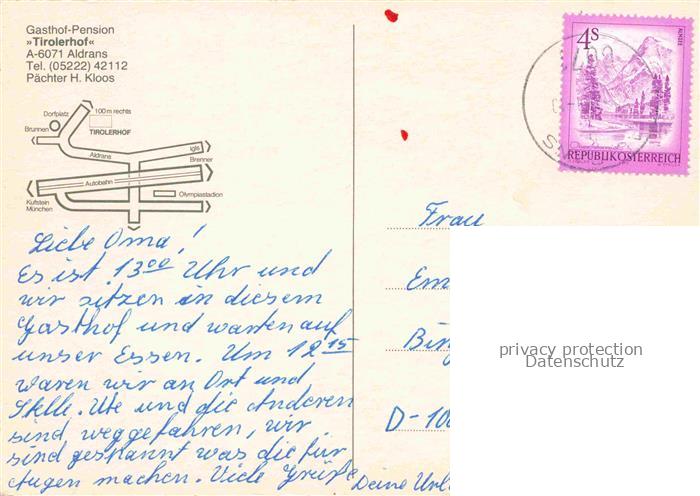 Gasthof-Pension
»Tirolerhof«
A-6071 Aldrans
Tel. (05222) 42112
Pächter H. Kloos
Dorfplatz
100 m rechts
Brunnen
TIROLERHOF
Aldrans
Igls
Brenner
Autobahn
Olympiastadion
Kufstein
München
4S
REPUBLIK ÖSTERREICH
Liebe Oma!
Es ist 13⁰⁰ Uhr und
wir sitzen in diesem
Gasthof und warten auf
unser Essen. Um 12¹⁵
waren wir an Ort und
Stelle. Ute und die Anderen
sind weggefahren, wir
sind gespannt was die für
Augen machen. Viele Grüße
Deine
Frau
Em
D-100
privacy protection
Datenschutz